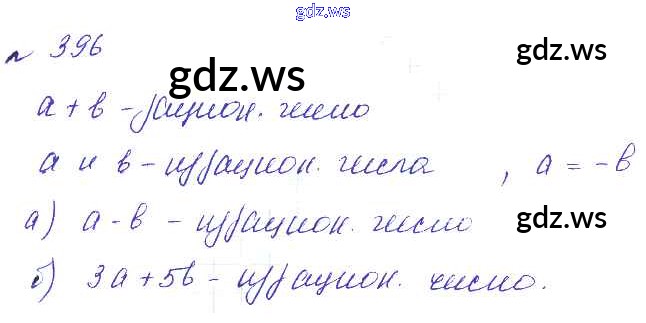 gdz.ws
№ 396
gdz.ws
gdz.ws
a + b - рацион. число
a и b - иррацион. числа , a = -b
а) a - b - иррацион. число
gdz.ws
gdz.ws
б) 3a + 5b - иррацион. число.